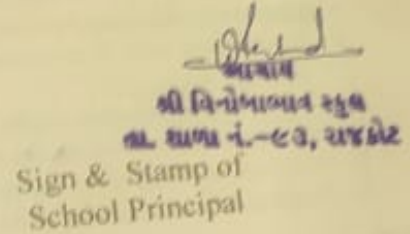 આચાર્ય
શ્રી વિનોબાભાવે સ્કુલ
તા. શાળા નં.-૯૩, રાજકોટ
Sign & Stamp of
School Principal